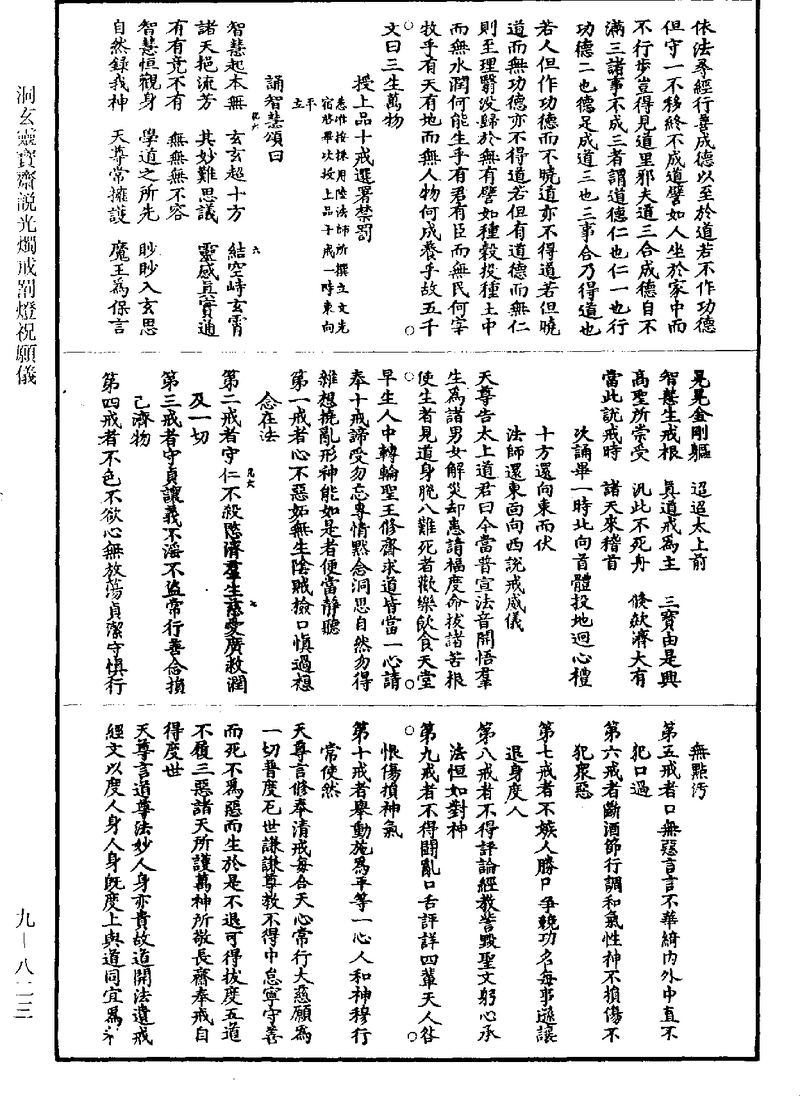 依法尋經行善成德以至於道若不作功德
但守一不移終不成道譬如人坐於家中而
不行步豈得見道里邪夫道三合成德自不
滿三諸事不成三者謂道德仁也仁一也行
功德二也德足成道三也三事合乃得道也
若人但作功德而不曉道亦不得道若但曉
道而無功德亦不得道若但有道德而無仁
則至理翳沒歸於無有譬如種穀投種土中
而無水潤何能生乎有君有臣而無民何宰
牧乎有天有地而無人物何成養乎故五千
文曰三生萬物
授上品十戒選署禁罰
悉准按採用陸法師所撰立文光
宿啓畢次授上品十戒一時東向
平立
誦智慧頌曰
智慧起本無 玄玄超十方 結空峙玄霄
諸天挹流芳 其妙難思議 靈感真實通
有有竟不有 無無無不容
智慧恒觀身 學道之所先 眇眇入玄思
自然錄我神 天尊常擁護 魔王為保言
晃晃金剛軀 迢迢太上前
智慧生戒根 真道戒為主 三寶由是興
高聖所崇受 汎此不死舟 倏欻濟大有
當此說戒時 諸天來稽首
次誦畢一時北向首體投地迴心禮
十方還向東而伏
法師還東面向西說戒威儀
天尊告太上道君曰今當普宣法音開悟羣
生為諸男女解災却患請福度命拔諸苦根
使生者見道身脫八難死者歡樂飲食天堂
早生人中轉輪聖王修齋求道皆當一心請
奉十戒諦受勿忘專情默念洞思自然勿得
雜想撓亂形神能如是者便當靜聽
第一戒者心不惡妬無生陰賊檢口慎過想
念在法
第二戒者守仁不殺愍濟羣生慈愛廣救潤
及一切
第三戒者守貞讓義不淫不盜常行善念損
己濟物
第四戒者不色不欲心無放蕩貞潔守慎行
無點污
第五戒者口無惡言言不華綺內外中直不
犯口過
第六戒者斷酒節行調和氣性神不損傷不
犯眾惡
第七戒者不嫉人勝己爭競功名每事遜讓
退身度人
第八戒者不得評論經教訾毀聖文躬心承
法恒如對神
第九戒者不得鬭亂口舌評詳四輩天人咎
恨傷損神氣
第十戒者舉動施為平等一心人和神穆行
常使然
天尊言修奉清戒每合天心常行大慈願為
一切普度厄世謙謙尊教不得中怠寧守善
而死不為惡而生於是不退可得拔度五道
不履三惡諸天所護萬神所敬長齋奉戒自
得度世
天尊言道尊法妙人身亦貴故道開法遺戒
經文以度人身人身既度上與道同宜為
洞玄靈寶齋說光燭戒罰燈祝願儀
九—八二三